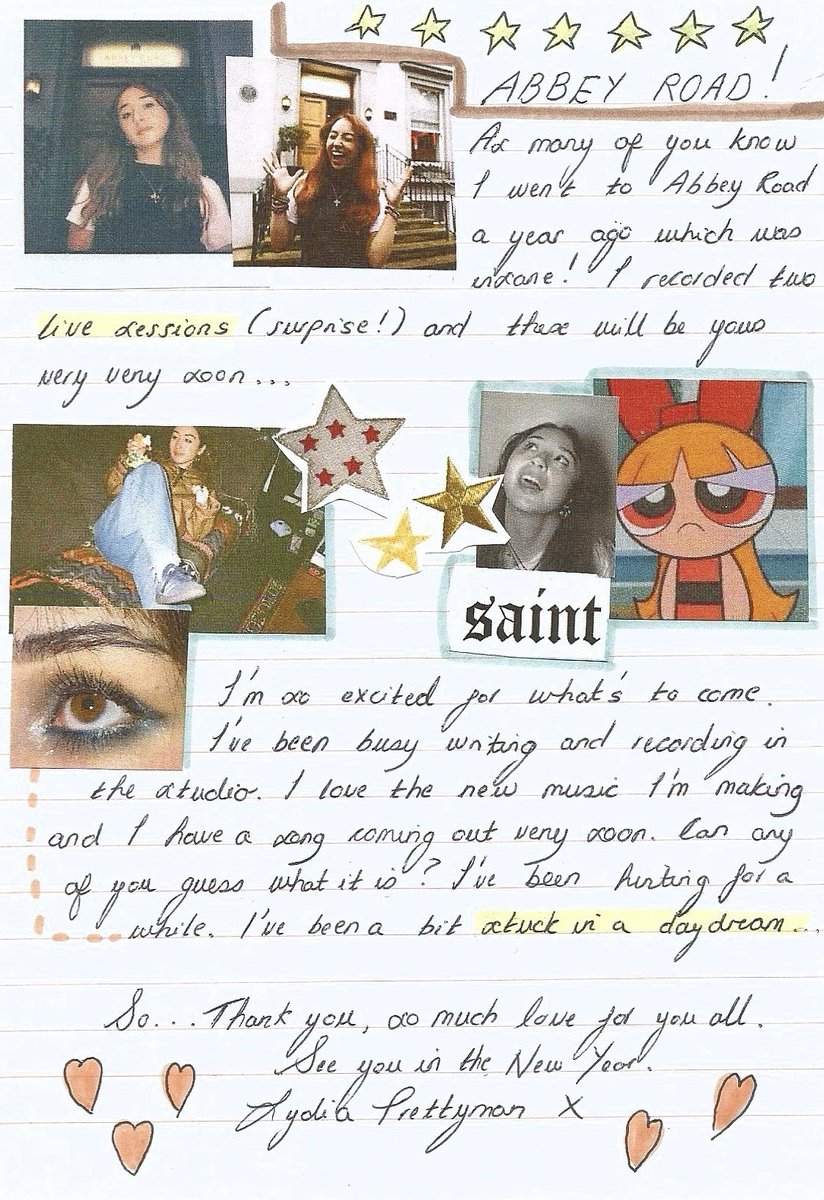 ABBEY ROAD!
As many of you know
I went to Abbey Road
a year ago which was
insane! I recorded two
live sessions (surprise!) and these will be yours
very very soon...
saint
I'm so excited for what's to come.
I've been busy writing and recording in
the studio. I love the new music I'm making
and I have a song coming out very soon. Can any
of you guess what it is? I've been hinting for a
while. I've been a bit stuck in a daydream...
So... Thank you, so much love for you all.
See you in the New Year.
Lydia Prettyman X